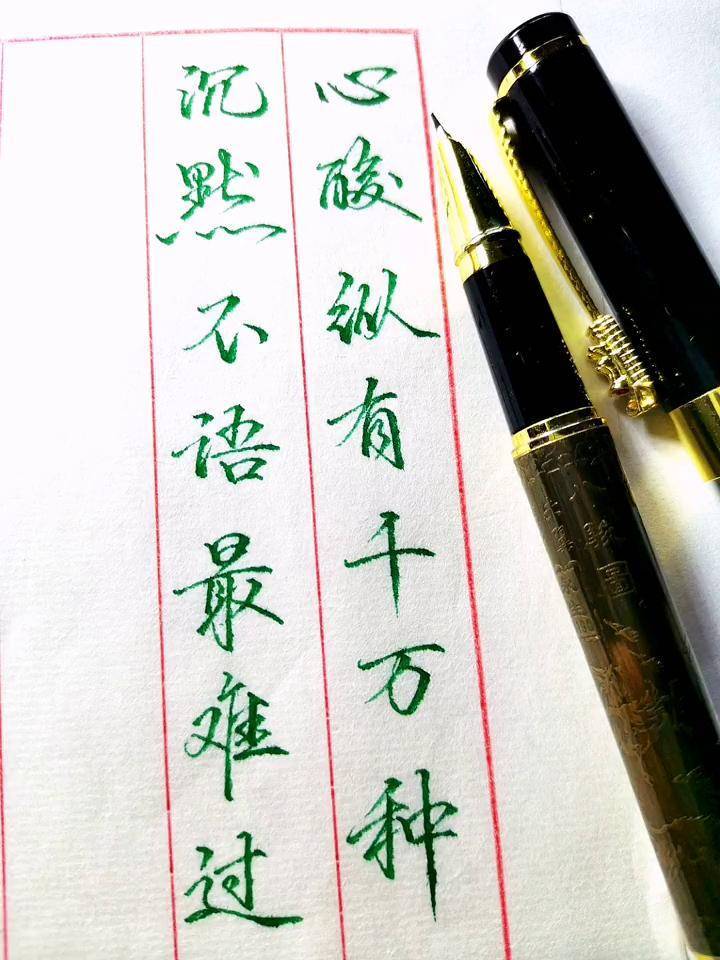 心酸纵有千万种
沉默不语最难过